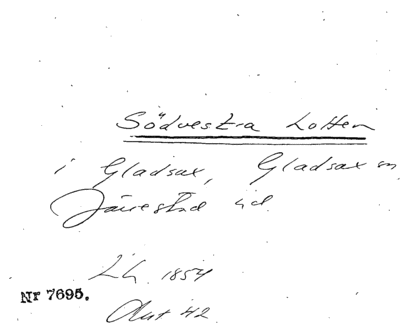 Södvestra Lotten
i Gladsax, Gladsax sn
Järrestad hd
Lh 1854
Nr 7695.
Aut 42